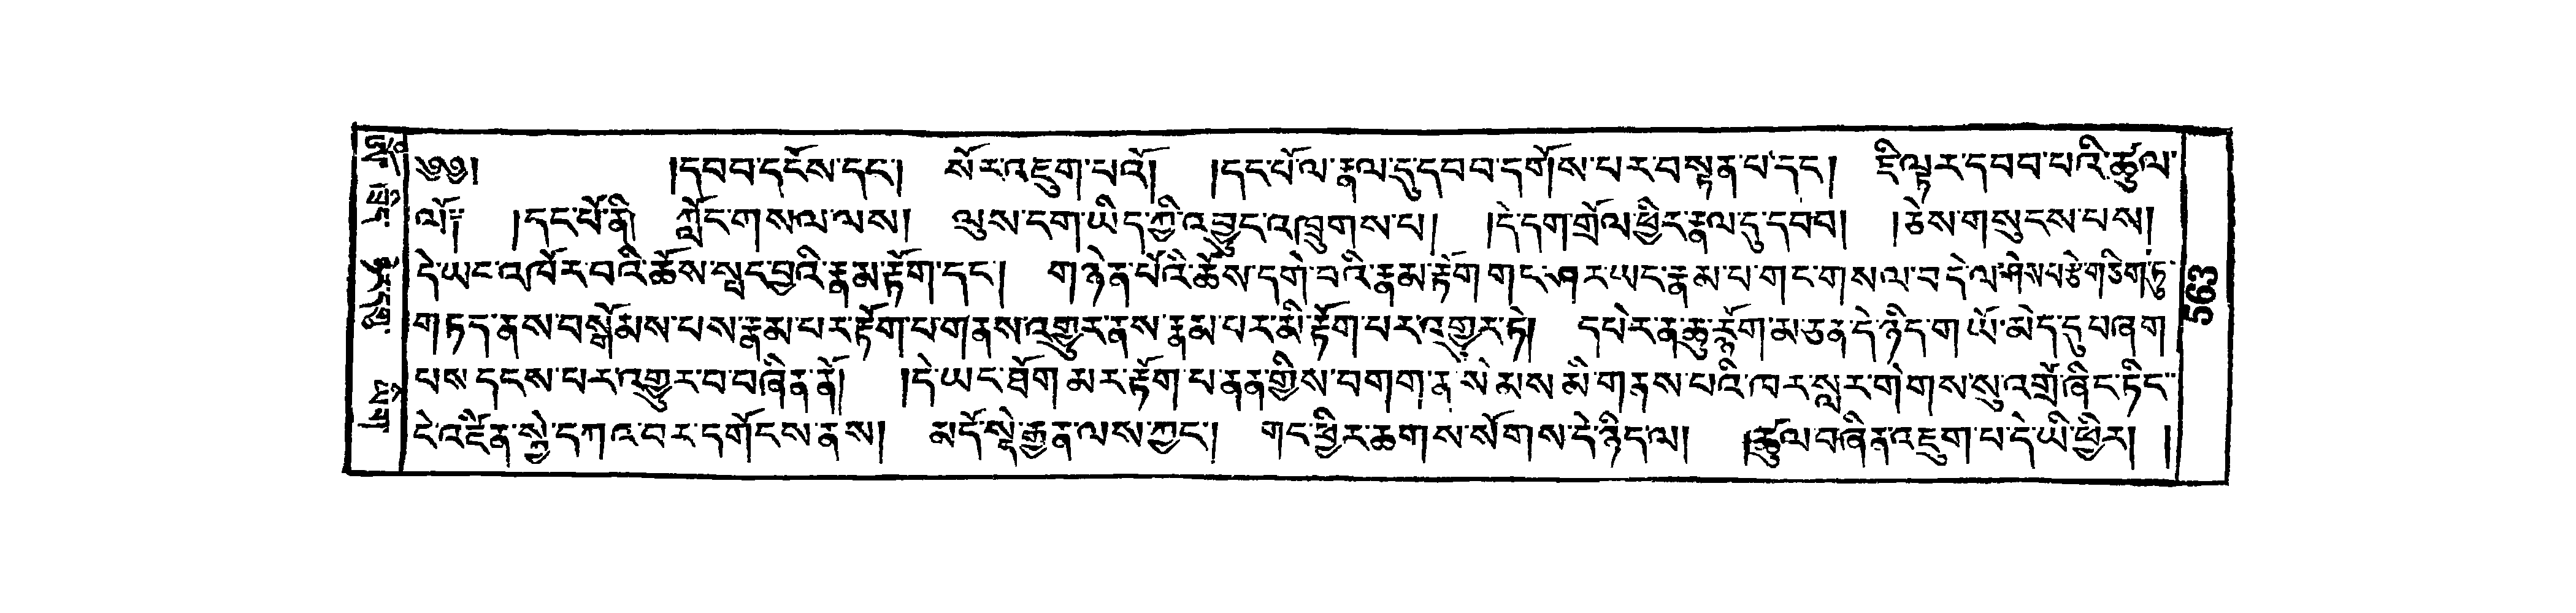 ༄༅། །དབབ་དངོས་དང་། སོར་འཇུག་པའོ། །དང་པོ་ལ་རྣལ་དུ་དབབ་དགོས་པར་བསྟན་པ་དང་། ཇི་ལྟར་དབབ་པའི་ཚུལ་
ལོ༔ །དང་པོ་ནི། ཀློང་གསལ་ལས། ལུས་དག་ཡིད་ཀྱི་འབྱུང་འཁྲུགས་པ། །དེ་དག་གྲོལ་ཕྱིར་རྣལ་དུ་དབབ། །ཅེས་གསུངས་པས།
དེ་ཡང་འཁོར་བའི་ཆོས་སྤང་བྱའི་རྣམ་རྟོག་དང་། གཉེན་པོའི་ཆོས་དགེ་བའི་རྣམ་རྟོག་གང་ཤར་ཡང་རྣམ་པ་གང་གསལ་བ་དེ་ལ་ཤེས་པ་རྩེ་གཅིག་ཏུ་
གཏད་ནས་བསྒོམས་པས་རྣམ་པར་རྟོག་པ་གནས་འགྱུར་ནས་རྣམ་པར་མི་རྟོག་པར་འགྱུར་ཏེ། དཔེར་ན་ཆུ་རྙོག་མ་ཅན་དེ་ཉིད་ག་ཡོ་མེད་དུ་བཞག་
པས་དངས་པར་འགྱུར་བ་བཞིན་ནོ། །དེ་ཡང་ཐོག་མར་རྟོག་པ་ནན་གྱིས་བགག་ན་སེམས་མི་གནས་པའི་ཁར་སླར་གེགས་སུ་འགྲོ་ཞིང་ཏིང་
ངེ་འཛིན་སྐྱེ་དཀའ་བར་དགོངས་ནས། མདོ་སྡེ་རྒྱན་ལས་ཀྱང་། གང་ཕྱིར་ཆགས་སོགས་དེ་ཉིད་ལ། །ཚུལ་བཞིན་འཇུག་པ་དེ་ཡི་ཕྱིར། །